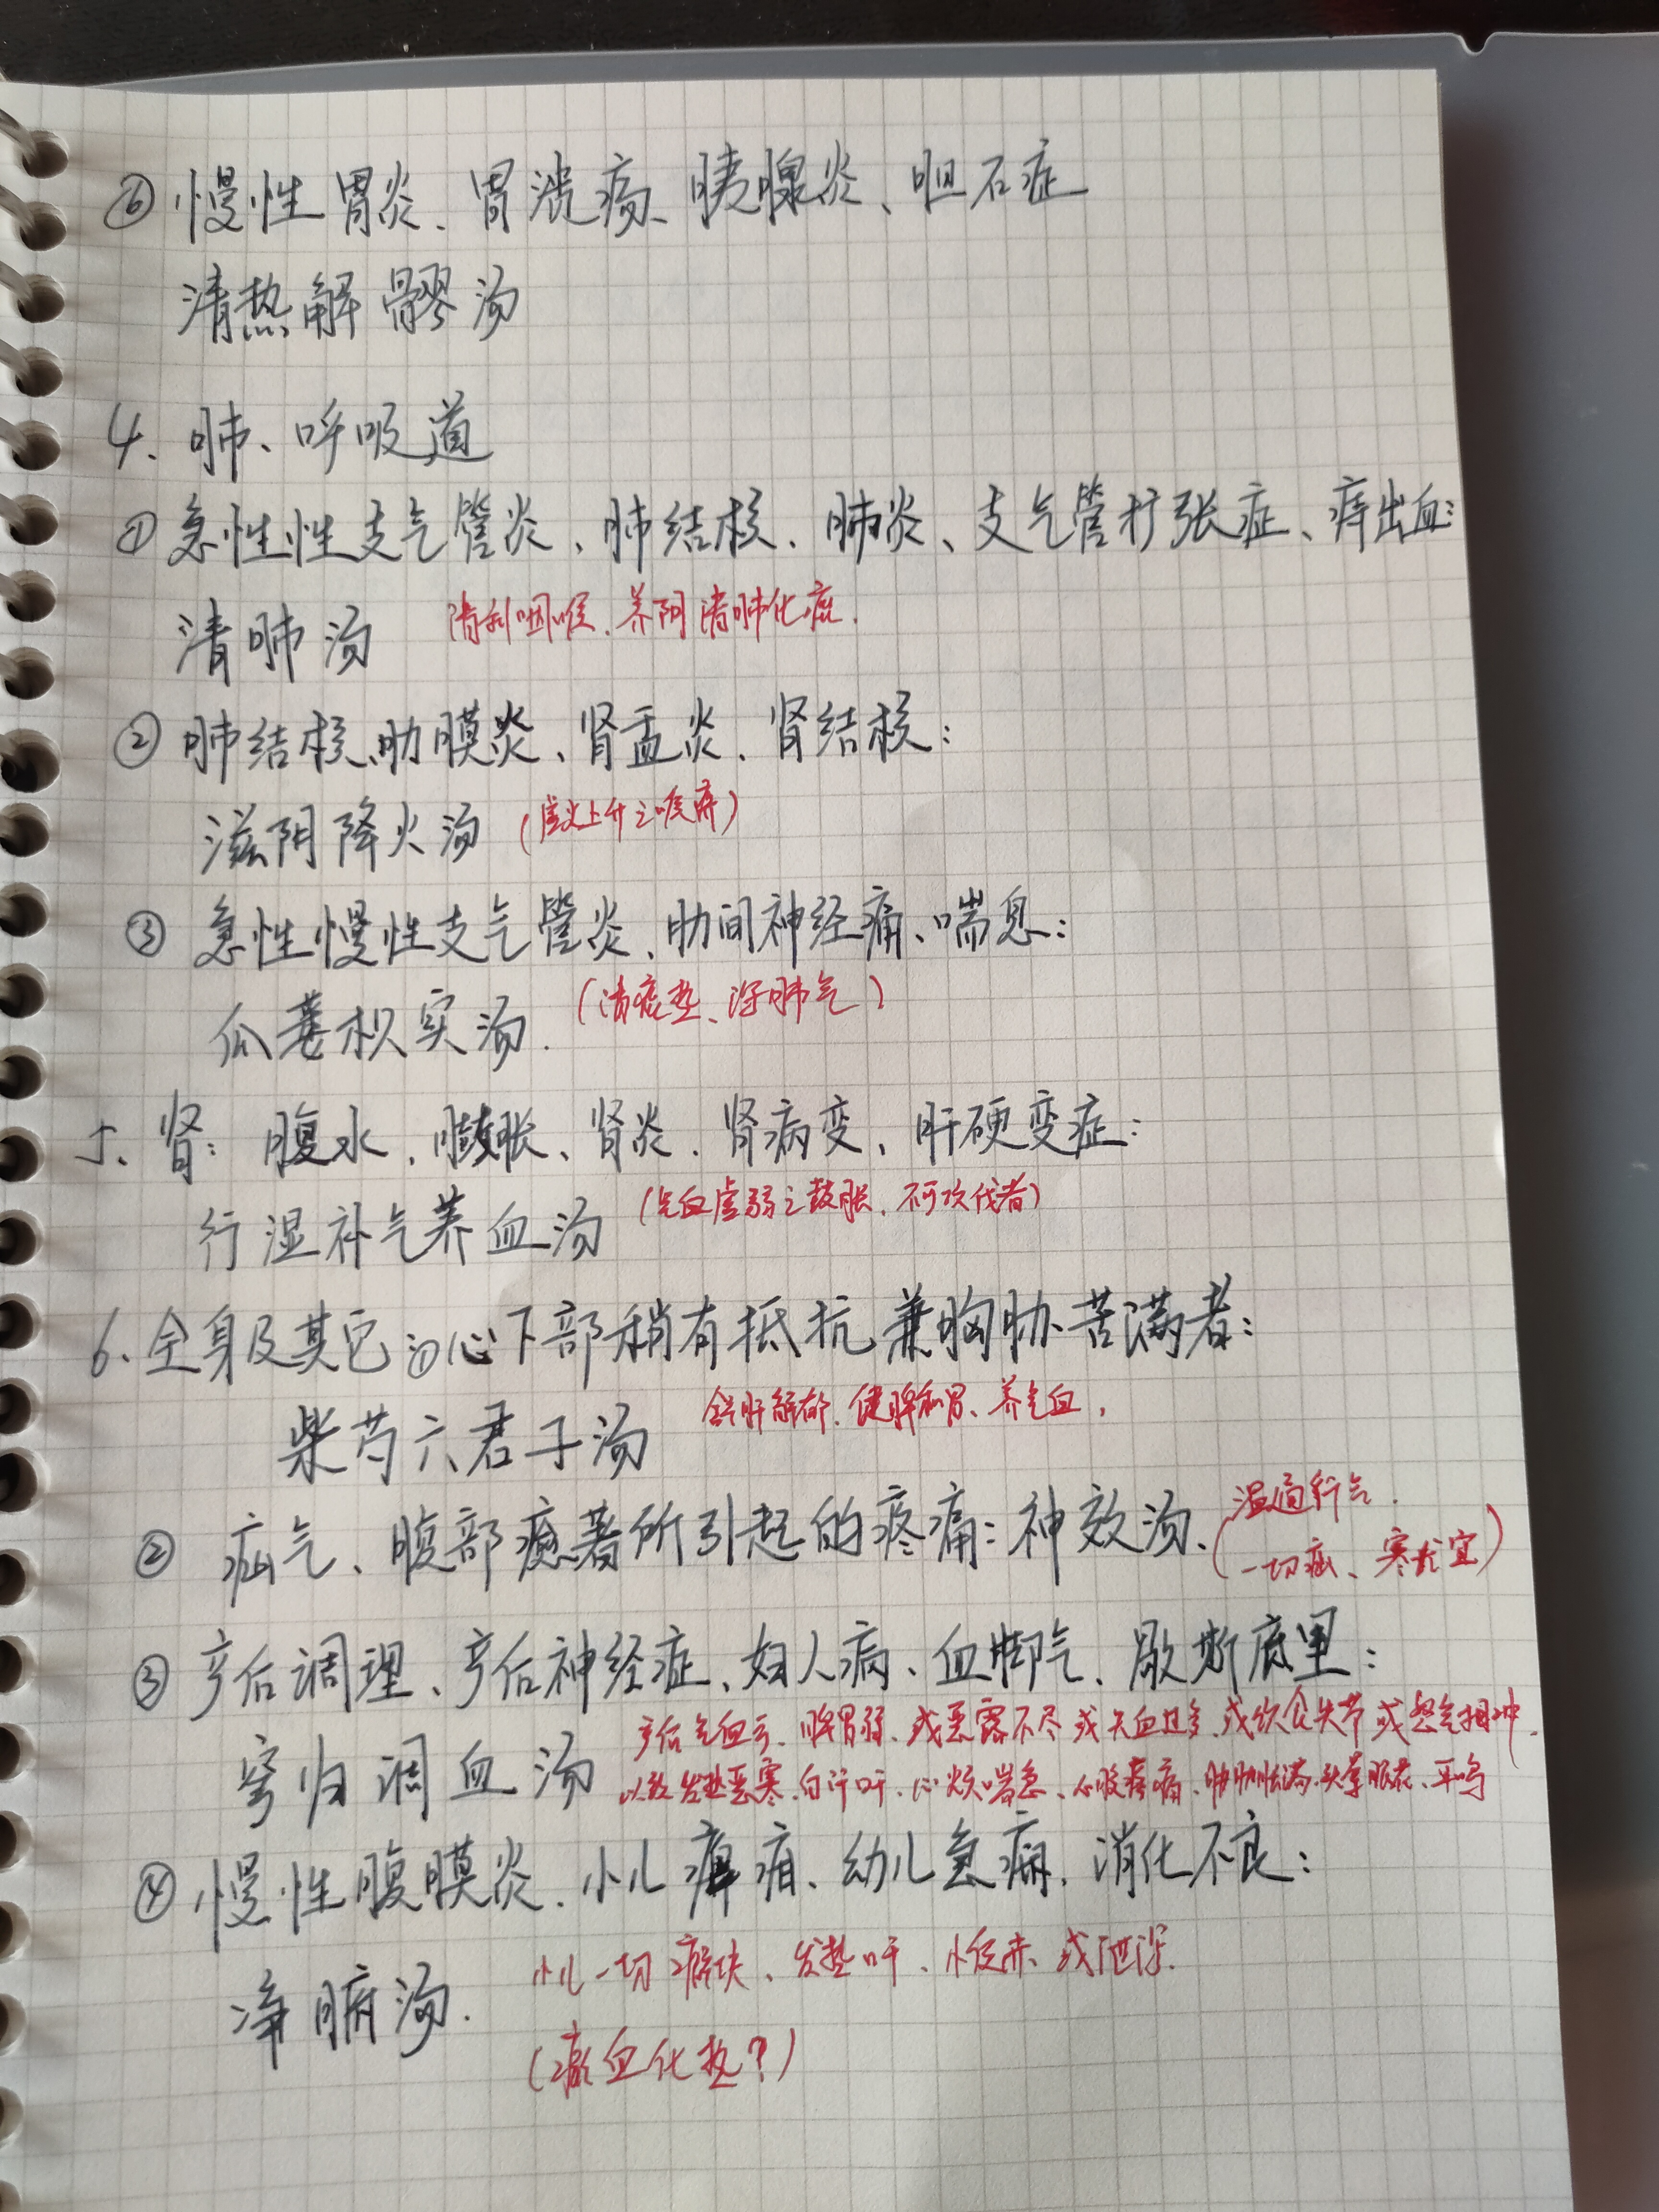 ⑥ 慢性胃炎、胃溃疡、胰腺炎、胆石症
清热解髎汤
4. 肺、呼吸道
① 急性性支气管炎、肺结核、肺炎、支气管扩张症、痔出血:
清肺汤 清利咽喉、养阴清肺化痰.
② 肺结核、肋膜炎、肾盂炎、肾结核:
滋阴降火汤 (虚火上升之喉痹)
③ 急性慢性支气管炎、肋间神经痛、喘息:
瓜蒌枳实汤. (清痰热、泻肺气)
5、肾: 腹水、臌胀、肾炎、肾病变、肝硬变症:
行湿补气养血汤 (气血虚弱之鼓胀、不可攻伐者)
6、全身及其它 ① 心下部稍有抵抗兼胸胁苦满者:
柴芍六君子汤 舒肝解郁、健脾和胃、养气血,
② 疝气、腹部瘀著所引起的疼痛: 神效汤、(温通行气.
一切疝、寒尤宜)
③ 产后调理、产后神经症、妇人病、血脚气、歇斯底里:
芎归调血汤 产后气血亏、脾胃弱、或恶露不尽 或失血过多、或饮食失节 或怒气相冲.
以致发热恶寒、自汗口干、心烦喘急、心腹疼痛、胁肋胀满、头晕眼花、耳鸣
④ 慢性腹膜炎、小儿痹疳、幼儿急痫、消化不良:
净腑汤. 小儿一切癖块、发热口干、小便赤、或泄泻.
(瘀血化热?)